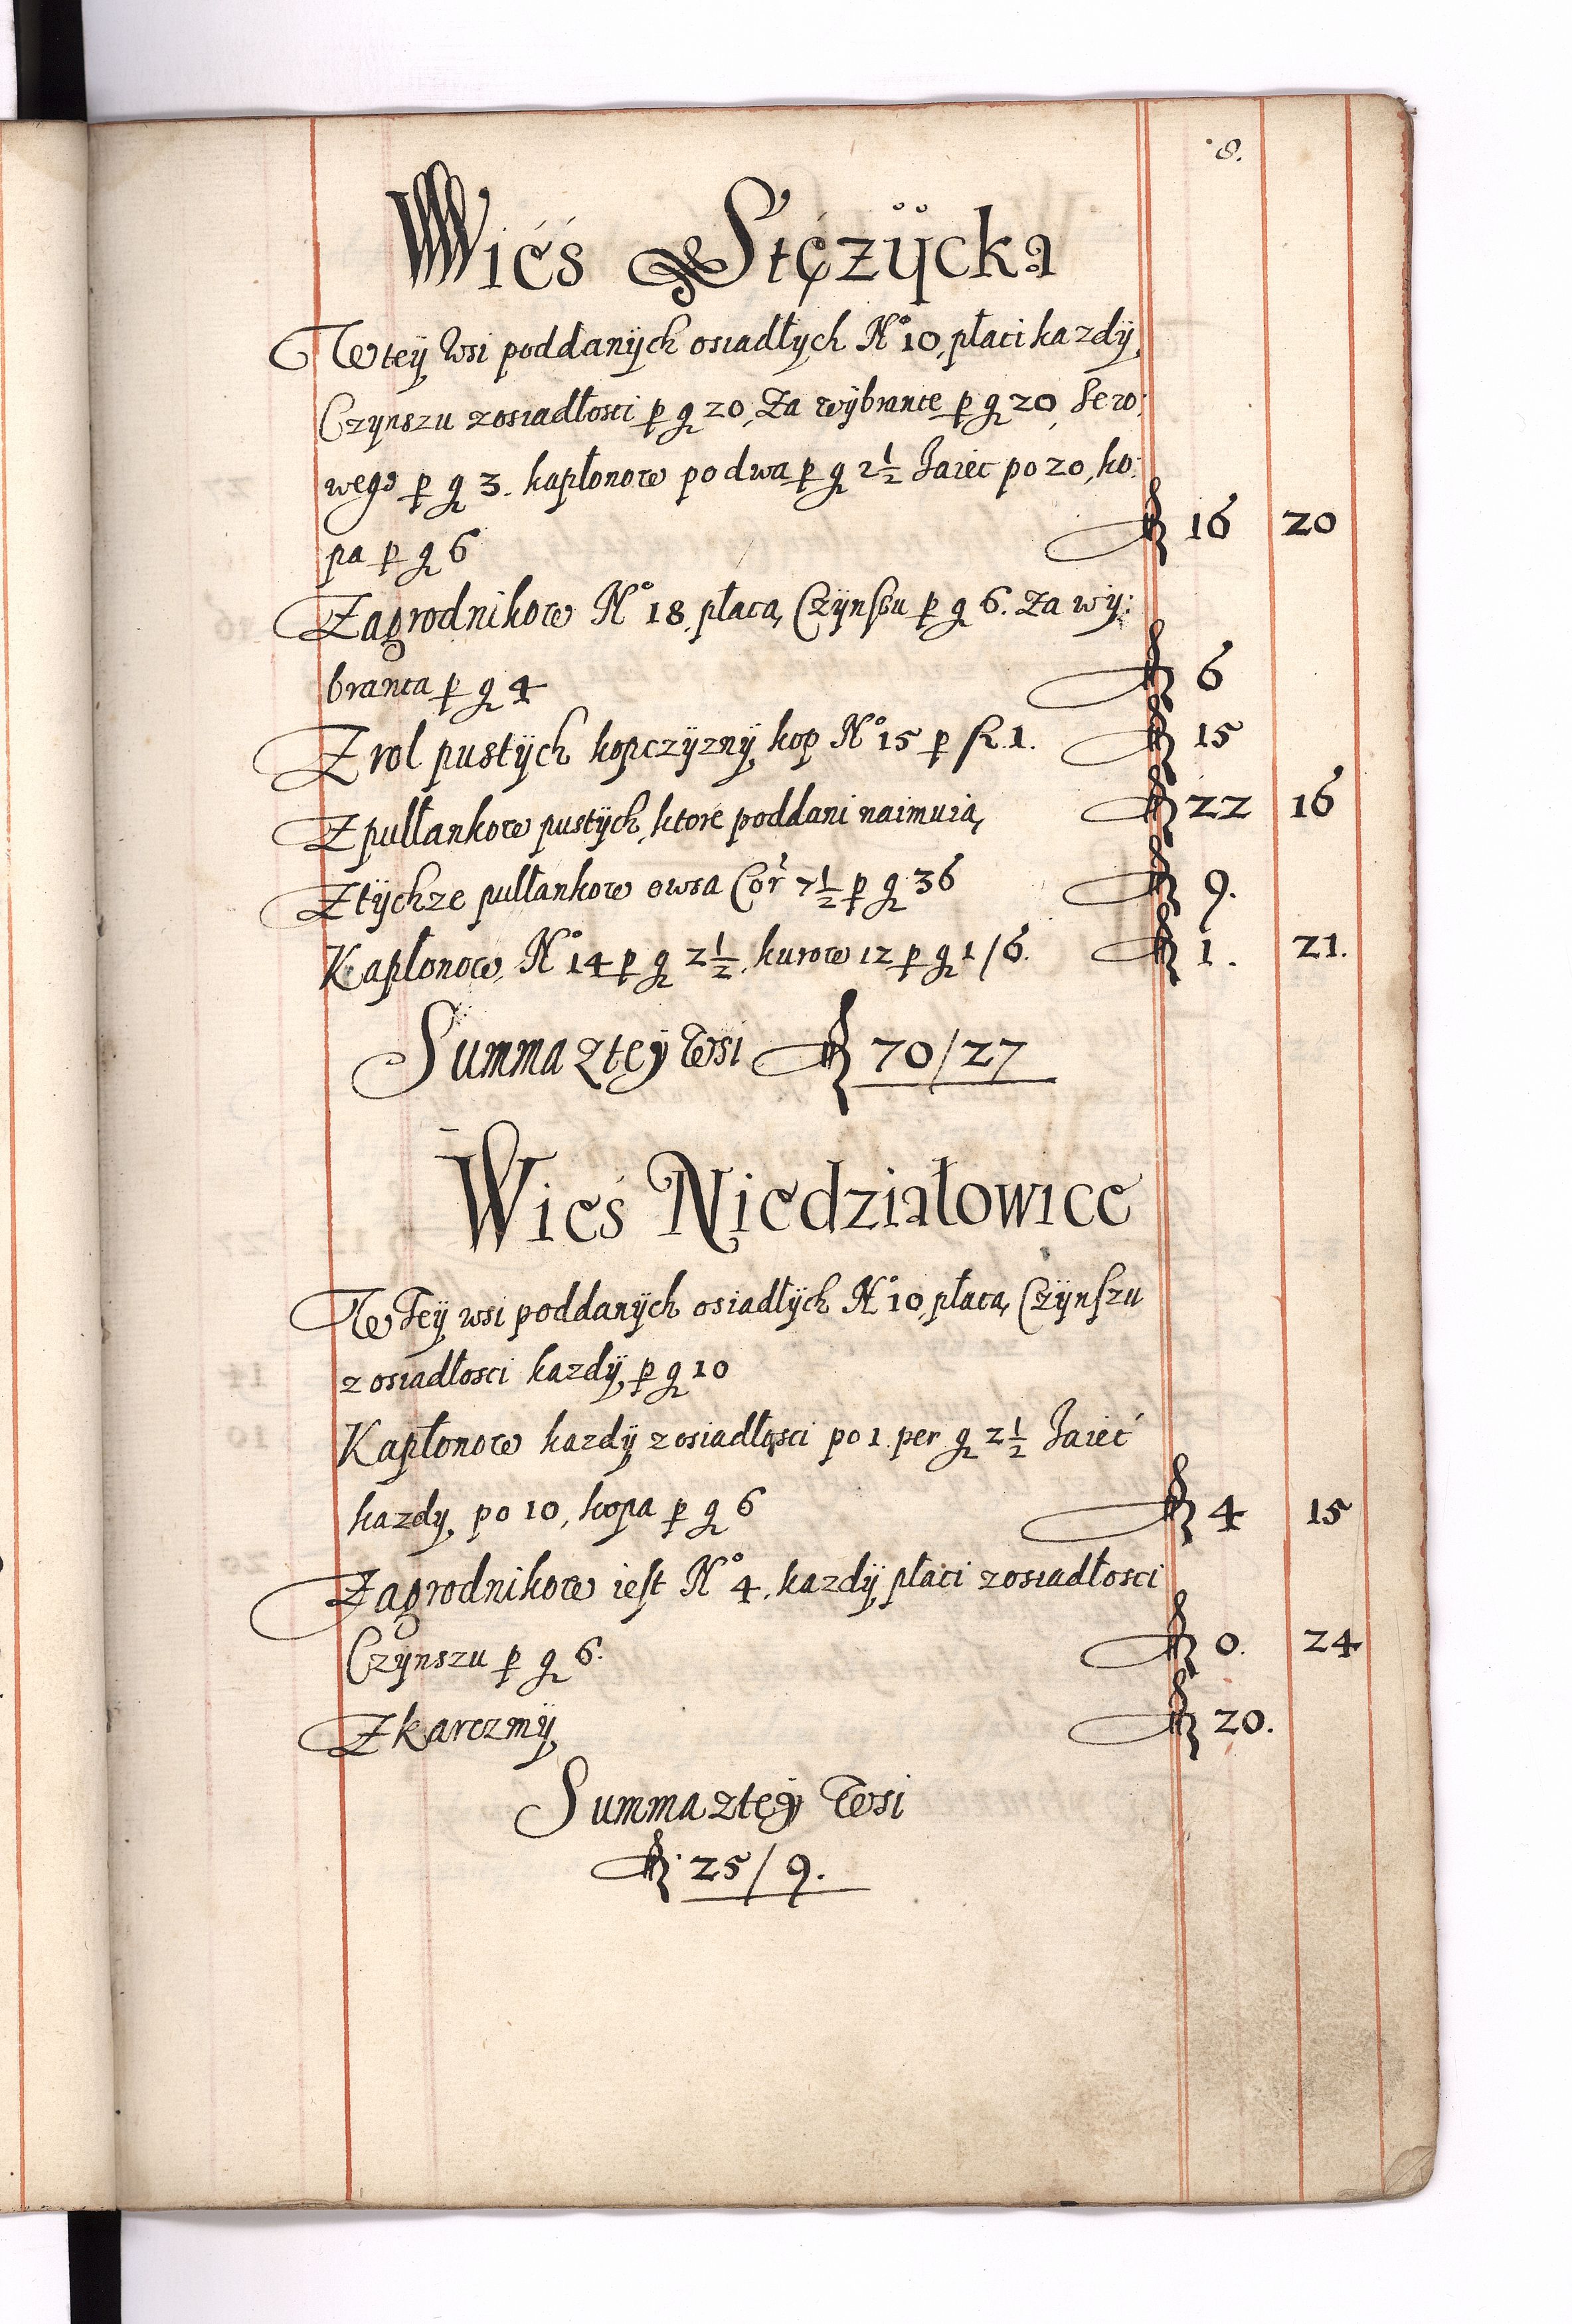 8.
Wieś Stężÿcka
W teÿ Wsi poddanÿch osiadłych No 10, płaci kazdÿ
Czynszu z osiadłosci p g 20, Za wÿbrance p g 20, Sero:
wego p g 3. kapłonow po dwa p g 2½ Jaiec po 20, ko:
pa p g 6 fl 16 20
Zagrodnikow No 18. płacą Czÿnßu p g 6. Za wÿ:
branca p g 4 fl 6
Z rol pustÿch kopczÿznÿ kop No 15 p fl 1. fl 15
Z pułłankow pustÿch, ktore poddani naimuią fl 22 16
Z tÿchze pułłankow owsa Cor 7½ p g 36 fl 9.
Kapłonow No 14 p g 2½, kurow 12 p g 1/6. fl 1. 21.
Summa z teÿ Wsi fl 70/27
Wieś Niedziałowice
W Teÿ wsi poddanÿch osiadłÿch No 10, płacą Czÿnszu
z osiadłosci kazdÿ p g 10
Kapłonow kazdÿ z osiadłosci po 1. per g 2½ Jaieć
kazdy po 10, kopa p g 6 fl 4 15
Zagrodnikow iest No 4. kazdÿ płaci z osiadłosci
Czynszu p g 6. fl 0. 24
Z karczmÿ fl 20.
Summa z teÿ Wsi
fl. 25/9.